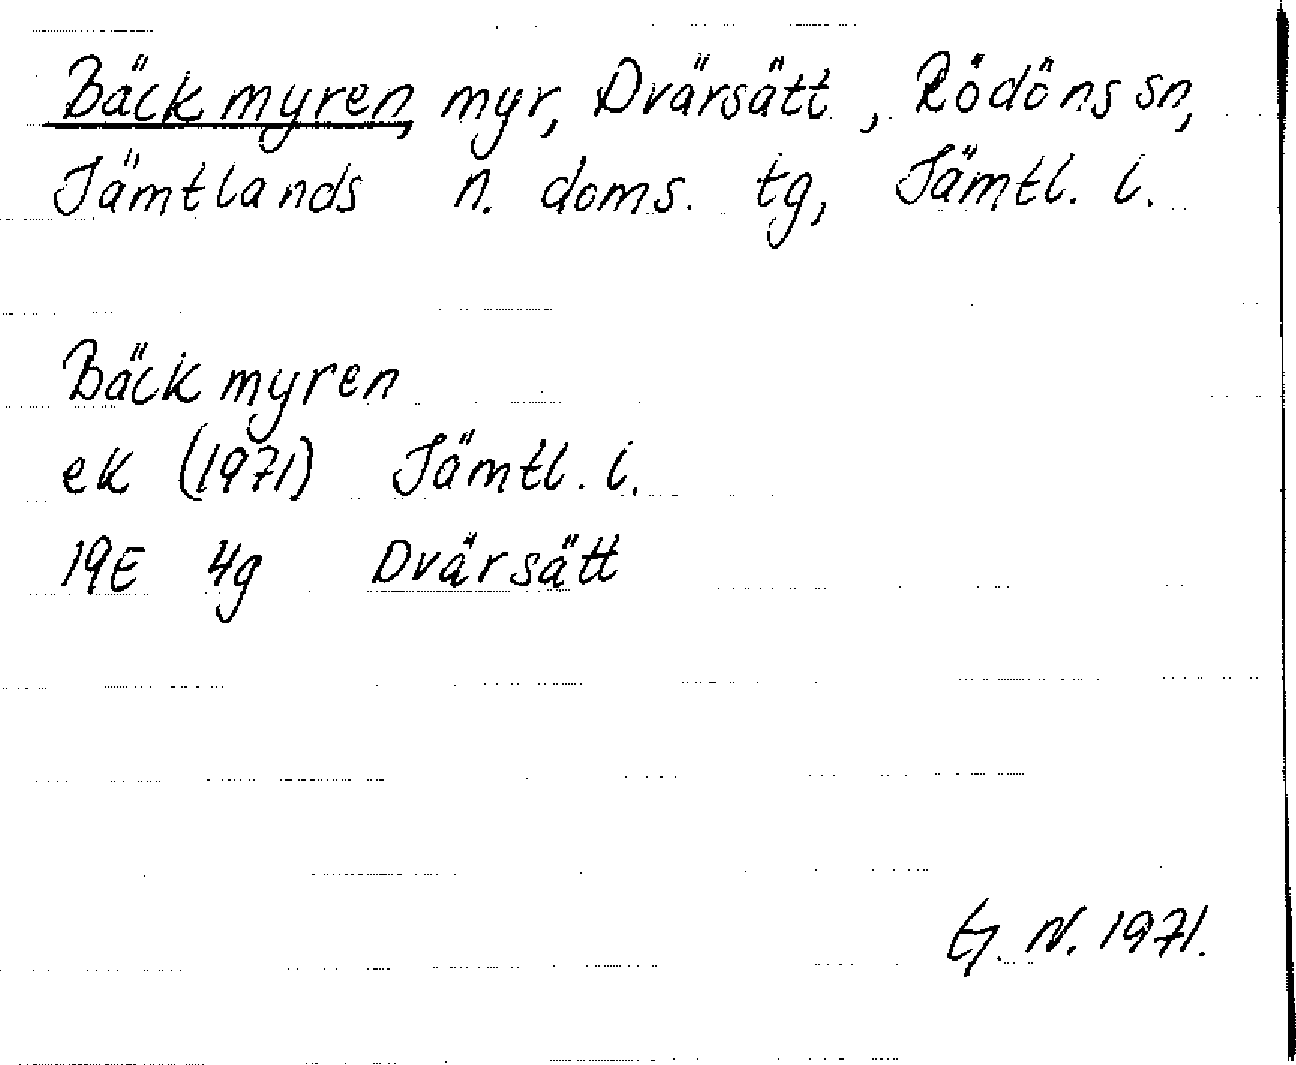 Bäckmyren, myr, Dvärsätt, Rödöns sn,
Jämtlands n. doms. tg, Jämtl. l.
Bäckmyren
ek (1971) Jämtl. l.
19E 4g Dvärsätt
G. N. 1971.